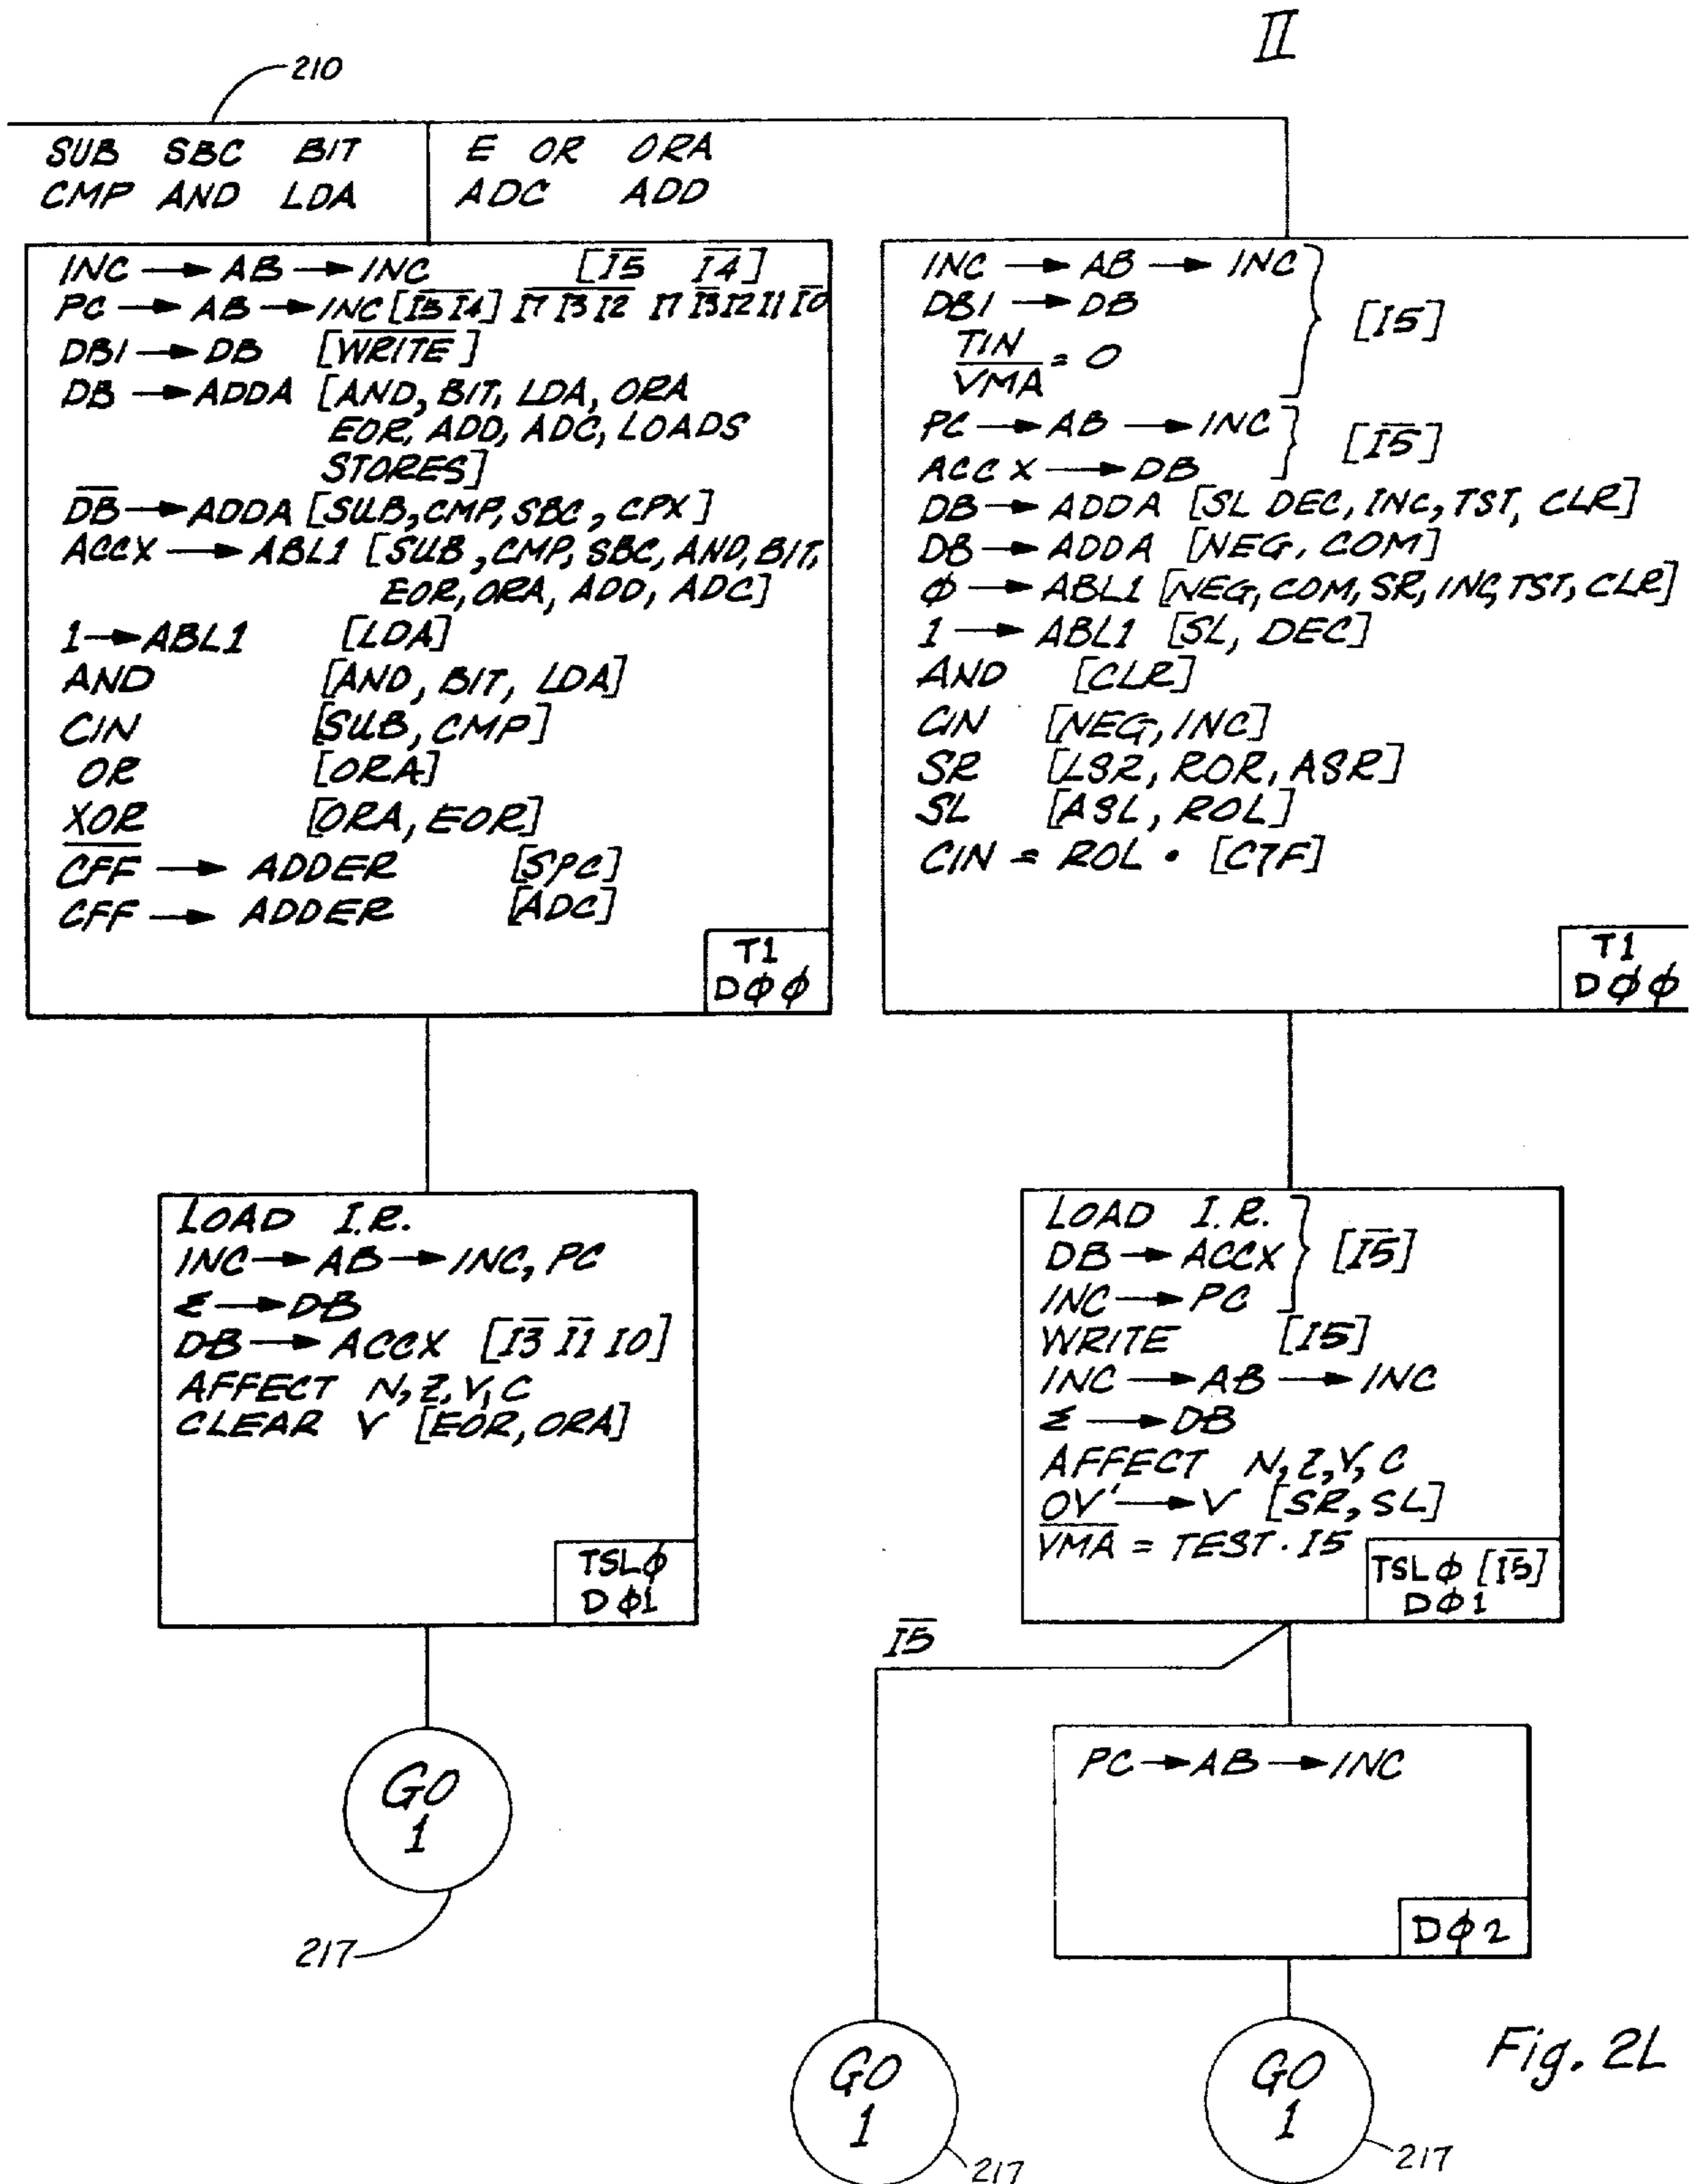 II
210
SUB SBC BIT E OR ORA
CMP AND LDA ADC ADD
INC → AB → INC [I̅5̅ I̅4̅]
PC → AB → INC [I̅5̅ I̅4̅] I̅7̅ I̅3̅ I̅2̅ I7 I̅3̅ I2 I1 I̅0̅
DBI → DB [W̅R̅I̅T̅E̅]
DB → ADDA [AND, BIT, LDA, ORA
EOR, ADD, ADC, LOADS
STORES]
D̅B̅ → ADDA [SUB, CMP, SBC, CPX]
ACCX → ABL1 [SUB, CMP, SBC, AND, BIT,
EOR, ORA, ADD, ADC]
1 → ABL1 [LDA]
AND [AND, BIT, LDA]
CIN [SUB, CMP]
OR [ORA]
XOR [ORA, EOR]
C̅F̅F̅ → ADDER [SPC]
CFF → ADDER [ADC]
T1
Dϕϕ
INC → AB → INC
DBI → DB
TIN
V̅M̅A̅ = 0
[I5]
PC → AB → INC
ACCX → DB
[I̅5̅]
DB → ADDA [SL DEC, INC, TST, CLR]
DB → ADDA [NEG, COM]
ϕ → ABL1 [NEG, COM, SR, INC, TST, CLR]
1 → ABL1 [SL, DEC]
AND [CLR]
CIN [NEG, INC]
SR [LSR, ROR, ASR]
SL [ASL, ROL]
CIN = ROL • [C7F]
T1
Dϕϕ
LOAD I.R.
INC → AB → INC, PC
Σ → DB
DB → ACCX [I̅3̅ I̅1̅ I0]
AFFECT N, Z, V, C
CLEAR V [EOR, ORA]
TSLϕ
Dϕ1
LOAD I.R.
DB → ACCX [I̅5̅]
INC → PC
WRITE [I5]
INC → AB → INC
Σ → DB
AFFECT N, Z, V, C
OV' → V [SR, SL]
V̅M̅A̅ = TEST · I5
TSLϕ [I̅5̅]
Dϕ1
I̅5̅
GO
1
217
PC → AB → INC
Dϕ2
GO
1
217
GO
1
217
Fig. 2L